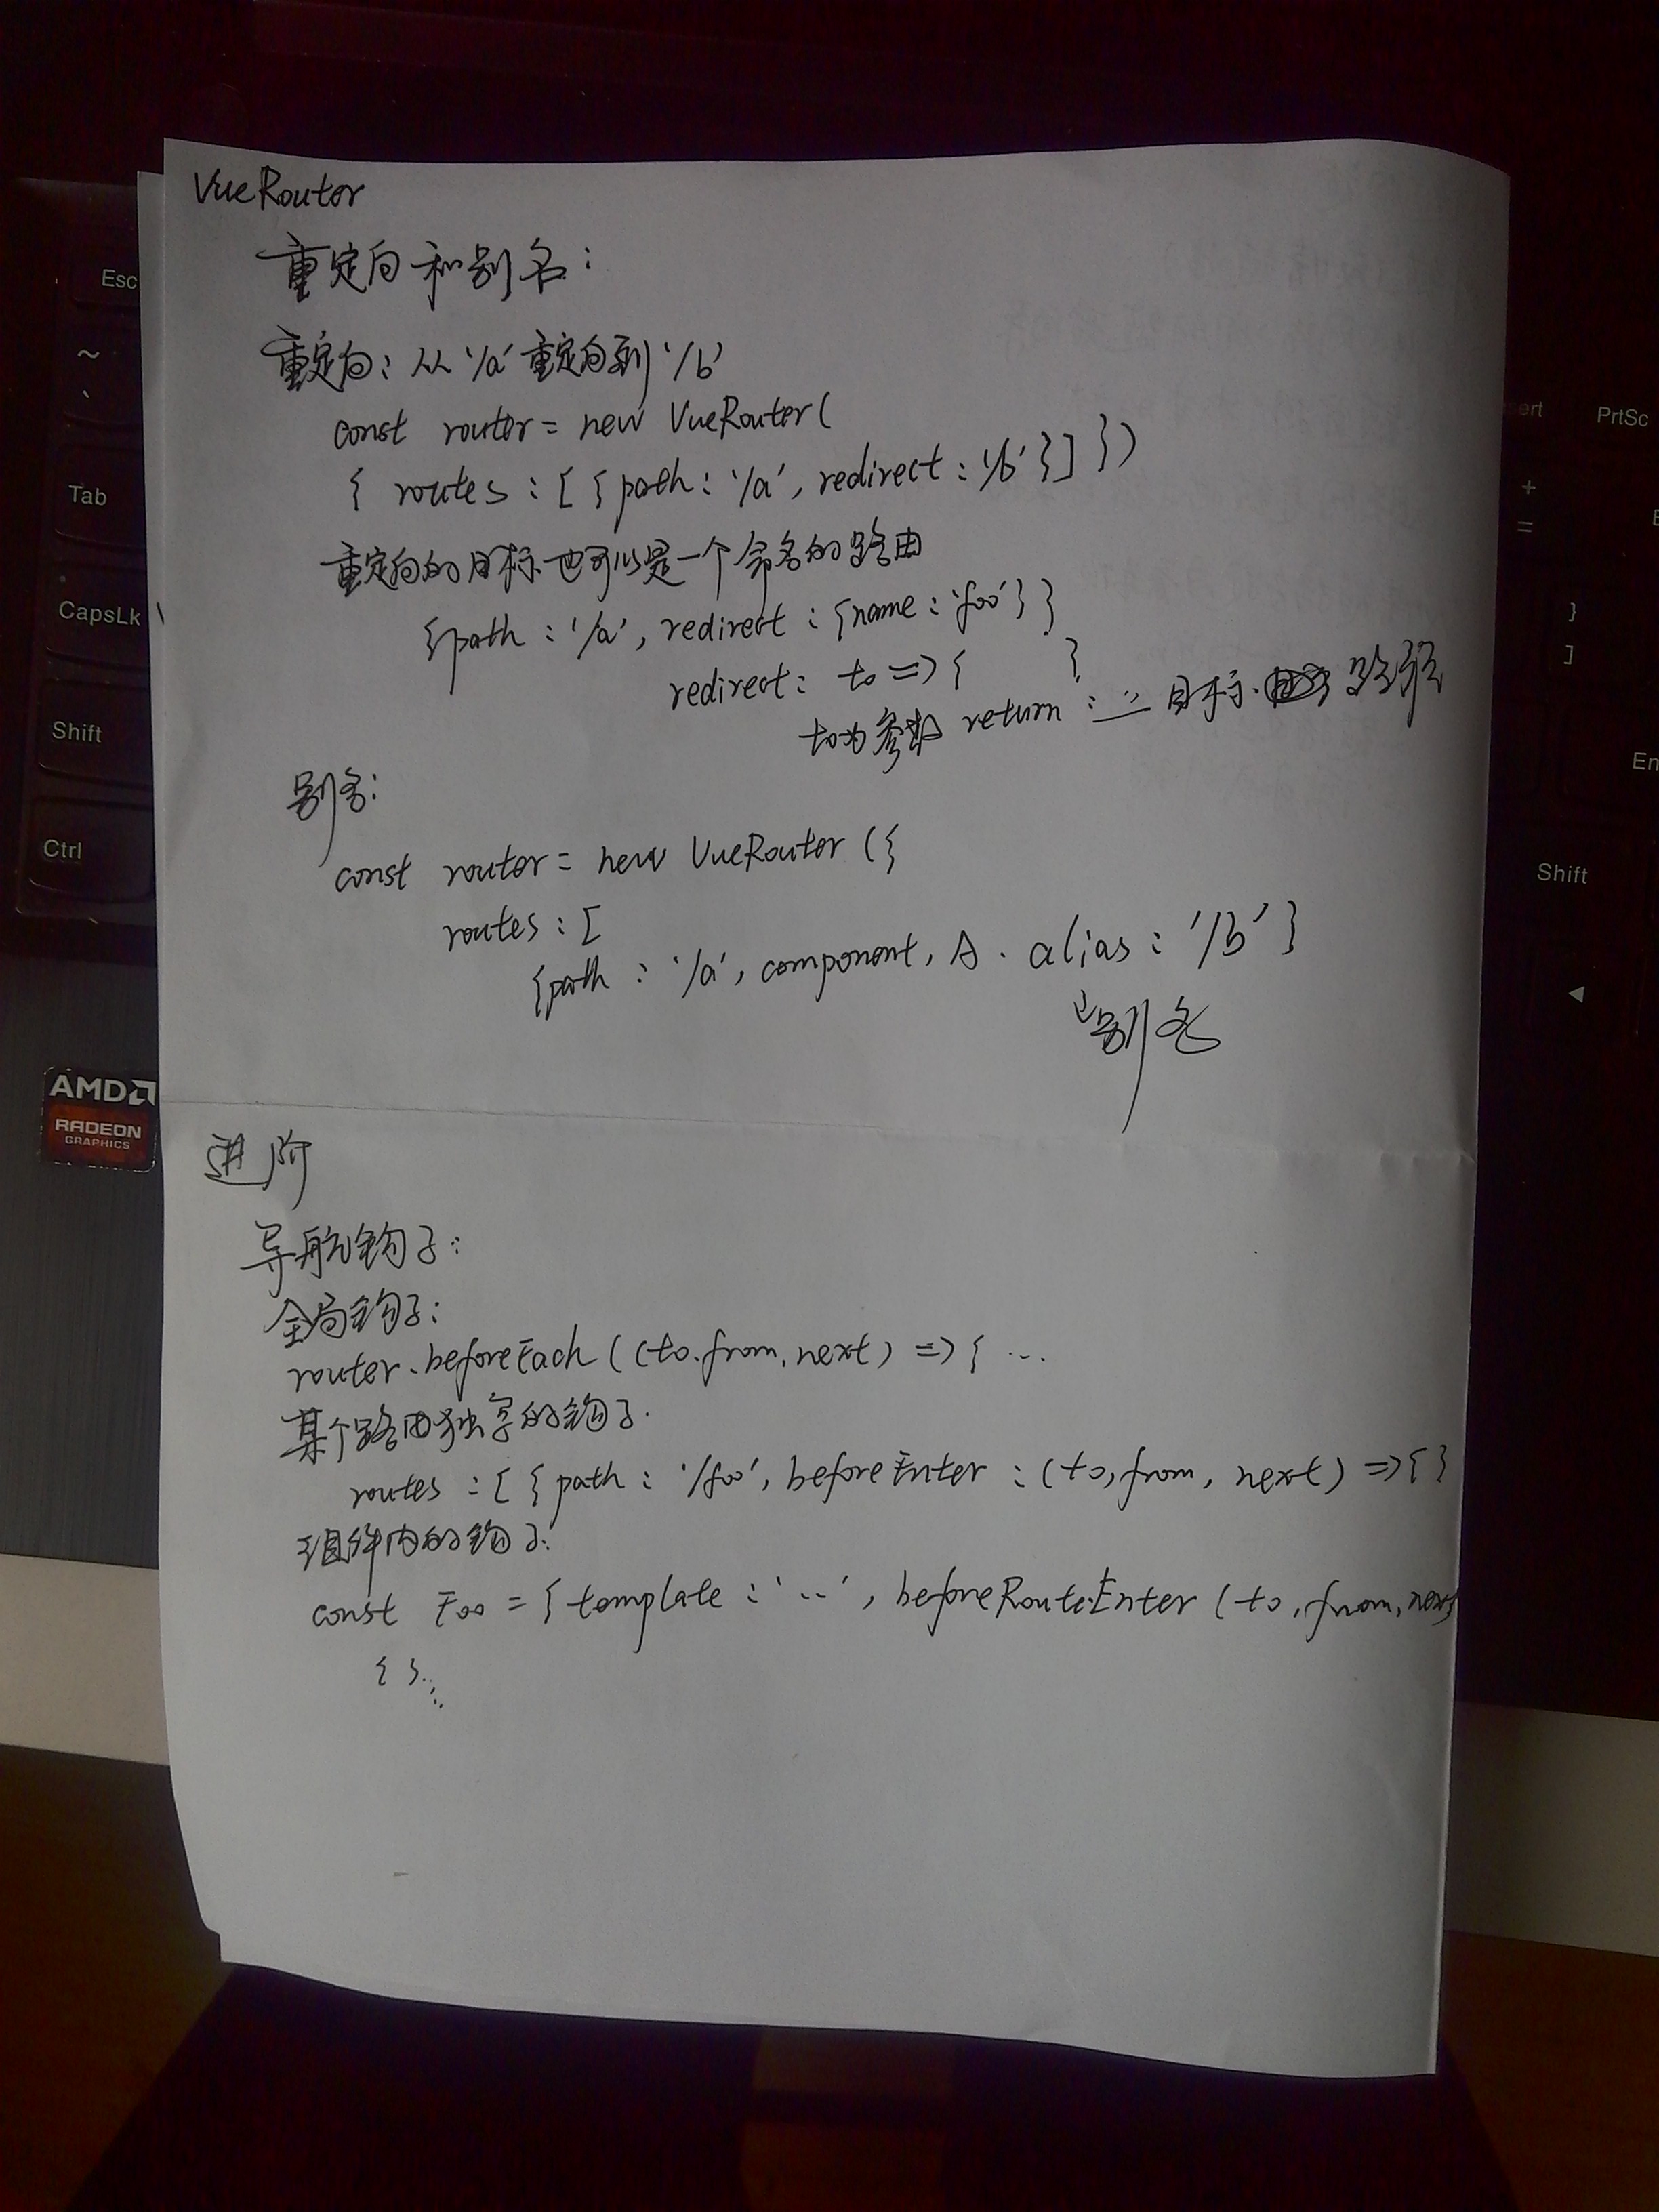 VueRouter
重定向和别名:
重定向: 从'/a'重定向到'/b'
const router = new VueRouter(
{ routes : [ { path : '/a', redirect : '/b' } ] })
重定向的目标也可以是一个命名的路由
{path : '/a', redirect : {name : 'foo' } }
redirect : to => { }
to为参数 return : 目标 路径
别名:
const router = new VueRouter ({
routes : [
{path : '/a', component, A. alias : '/b' }
别名
进阶
导航钩子:
全局钩子:
router.beforeEach ((to.from, next) => { ...
某个路由独享的钩子.
routes : [ { path : '/foo', beforeEnter : (to, from, next) => { }
组件内的钩子:
const Foo = { template : '...', beforeRouteEnter (to, from, next)
{ }...
Esc
~
`
Tab
CapsLk
Shift
Ctrl
AMD
RADEON
GRAPHICS
PrtSc
+
=
}
]
En
Shift
◄